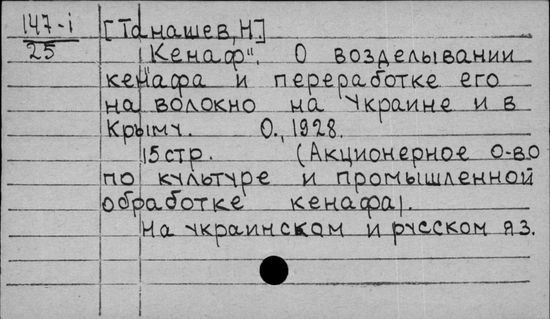 147-i [Танашев, Н]
25 "Кенаф". О возделывании
кенафа и переработке его
на волокно на Украине и в
Крыму. О., 1928.
15 стр. (Акционерное о-во
по культуре и промышленной
обработке кенафа).
На украинском и русском яз.